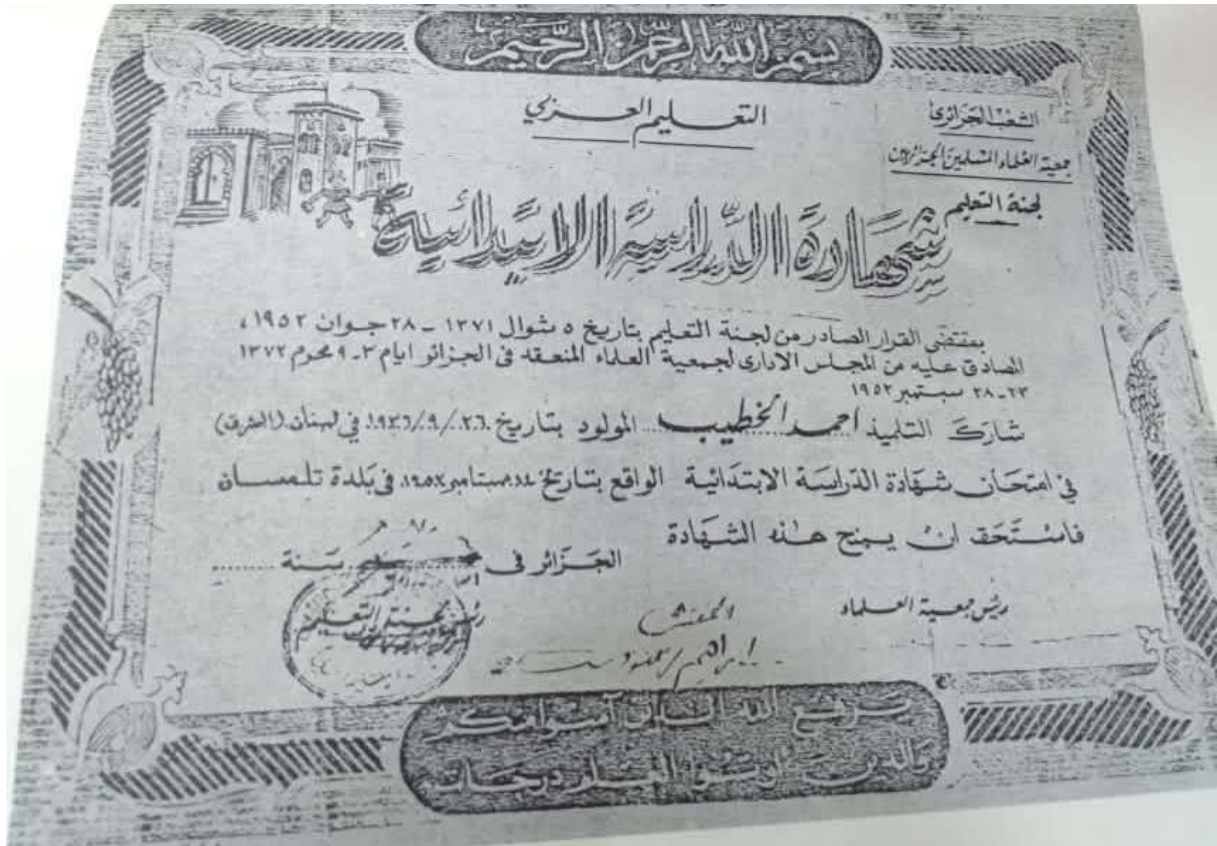 بسم الله الرحمن الرحيم
الشعب الجزائري
التعليم العربي
جمعية العلماء المسلمين الجزائريين
لجنة التعليم
شهادة الدراسة الابتدائية
بمقتضى القرار الصادر من لجنة التعليم بتاريخ ٥ شوال ١٣٧١ - ٢٨ جوان ١٩٥٢،
المصادق عليه من المجلس الاداري لجمعية العلماء المنعقد في الجزائر ايام ٣-٩ محرم ١٣٧٢
٢٣-٢٨ سبتمبر ١٩٥٢
شارك التلميذ احمد الخطيب المولود بتاريخ ٢٦/٩/١٩٣٦ في (الشرق)
في امتحان شهادة الدراسة الابتدائية الواقع بتاريخ ١٤ سبتامبر ١٩٥٢ في بلدة تلمسان
فاستحق ان يمنح هذه الشهادة
الجزائر في سنة
رئيس جمعية العلماء
المفتش
رئيس لجنة التعليم
يرفع الله الذين آمنوا منكم
والذين اوتوا العلم درجات